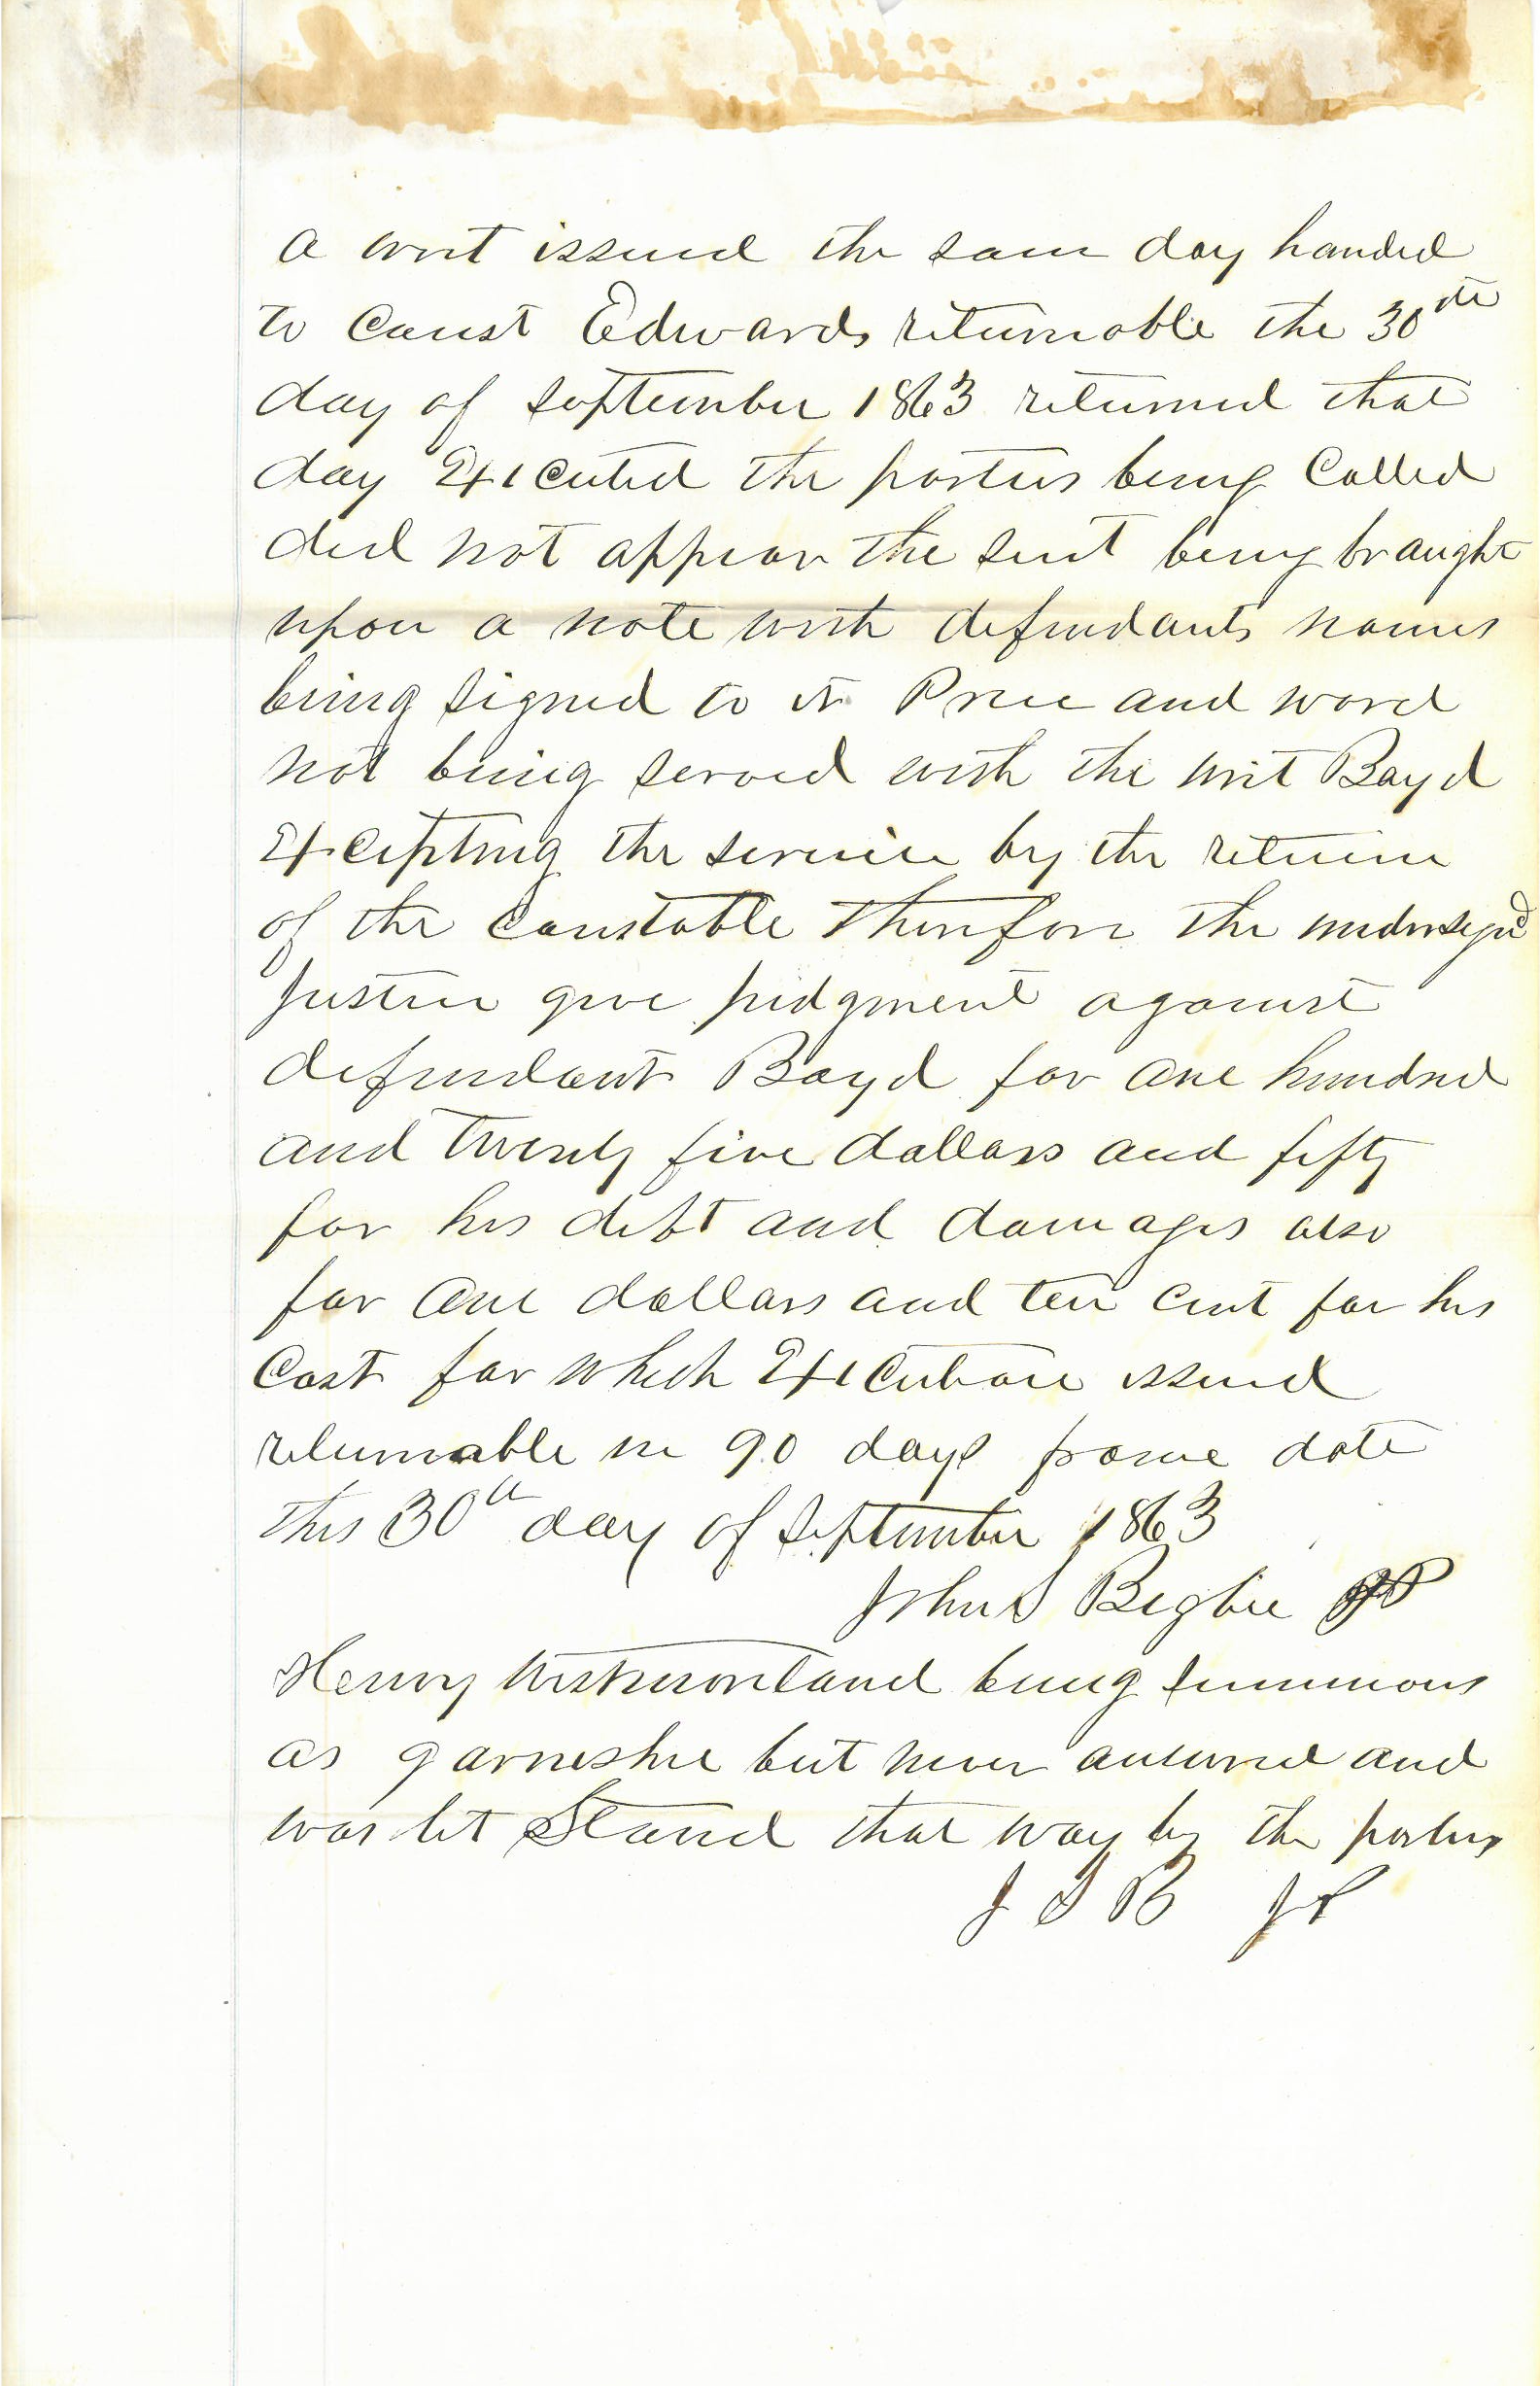 a writ issued the same day handed
to Const Edwards returnable the 30th
day of September 1863 returned that
day Executed the parties being Called
did not appear the suit being braught
upon a note with defendants names
being signed to it Price and word
not being served with the writ Boyd
Excepting the service by the return
of the Constable therefore the undersigned
Justice give judgment against
defendant Boyd for one hundred
and twenty five dollars and fifty
for his debt and damages also
for one dollars and ten cent for his
Cost for which Execution issued
returnable in 90 days frome date
this 30th day of September 1863
John S Bigbie JP
Henry being summons
as garneshee but never answred and
was let Stand that way by the parties
J S B JP